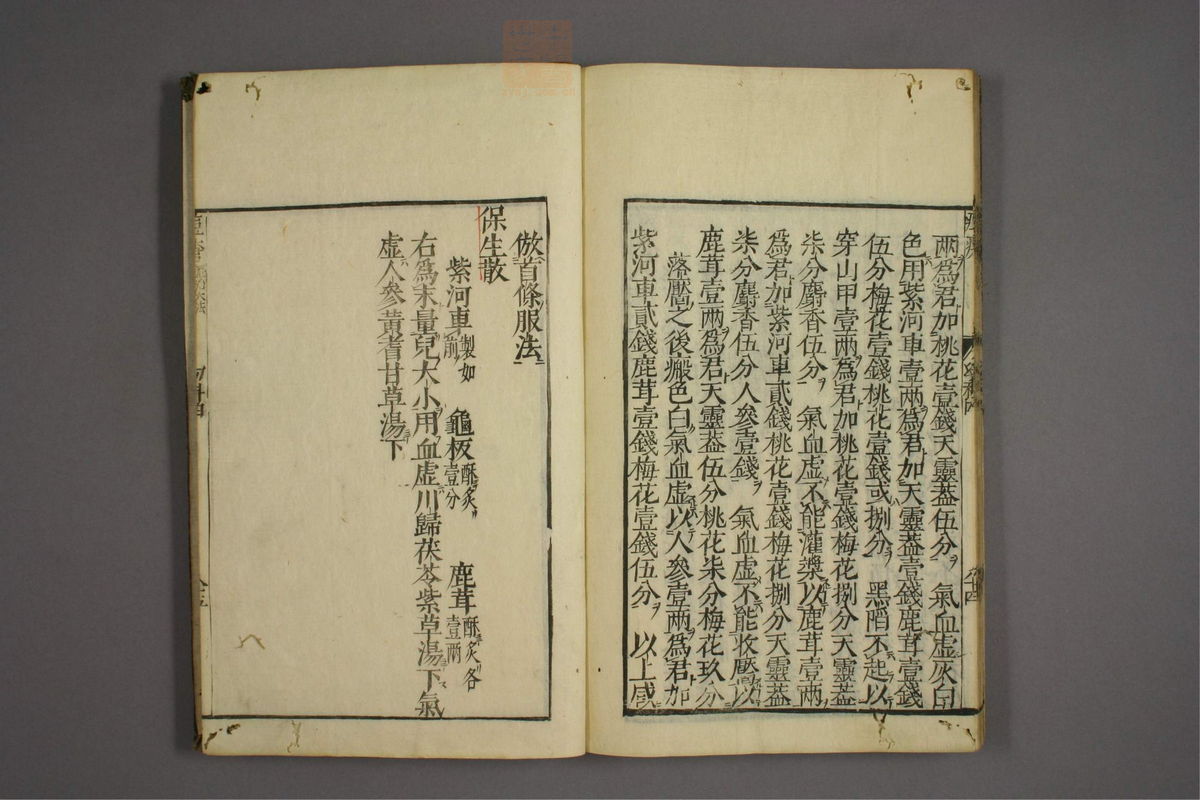 兩爲君加桃花壹錢天靈葢伍分 氣血虛灰白
色用紫河車壹兩爲君加天靈葢壹錢鹿茸壹錢
伍分梅花壹錢桃花壹錢或捌分 黑陷不起以
穿山甲壹兩爲君加桃花壹錢梅花捌分天靈葢
柒分麝香伍分 氣血虛不能灌漿以鹿茸壹兩
爲君加紫河車貳錢桃花壹錢梅花捌分天靈葢
柒分麝香伍分人參壹錢 氣血虛不能收靨以
鹿茸壹兩爲君天靈葢伍分桃花柒分梅花玖分
落靨之後瘢色白氣血虛以人參壹兩爲君加
紫河車貳錢鹿茸壹錢梅花壹錢伍分 以上咸
倣首條服法
保生散
紫河車製如前 龜板酥炙壹分 鹿茸酥炙各壹兩
右爲末量兒大小用血虛川歸茯苓紫草湯下氣
虛人參黃耆甘草湯下